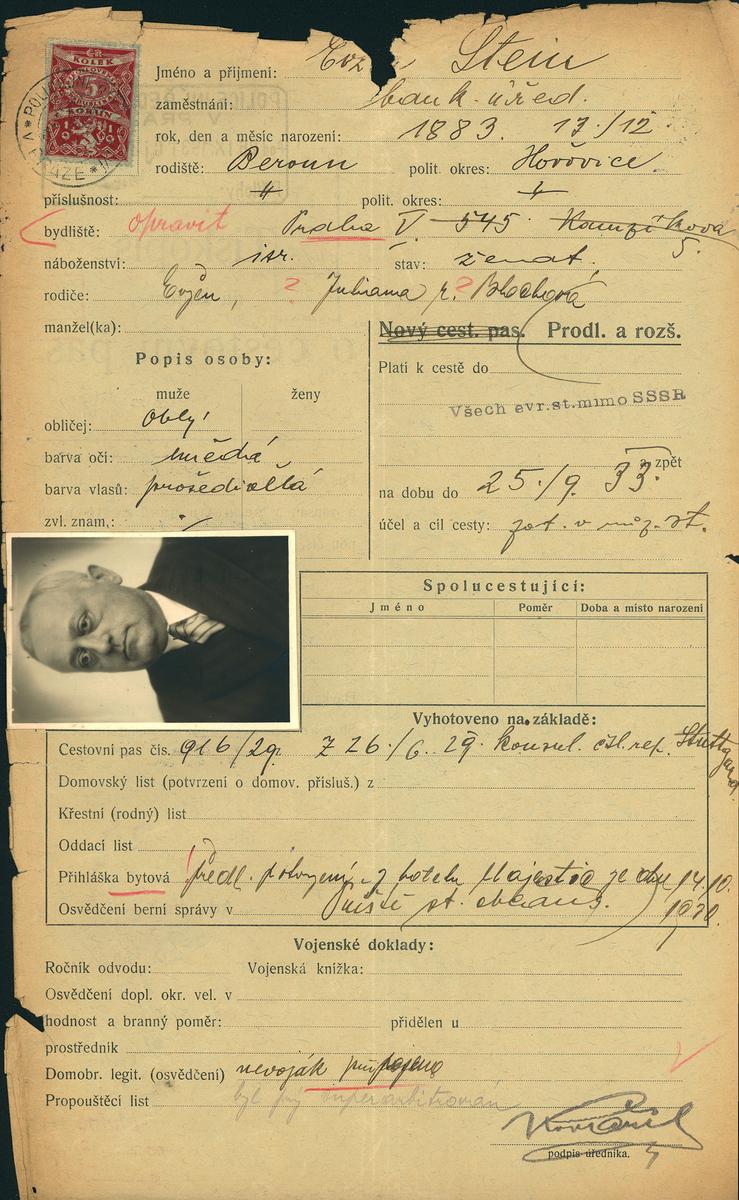 ČR
KOLEK
5
KORUN
Jméno a příjmení: Stein
zaměstnání: bank. úřed.
rok, den a měsíc narození: 1883. 17./12.
rodiště: Beroun polit. okres: Hořovice
příslušnost: " polit. okres: "
bydliště: opravit Praha V. 545 Kamzíkova
5.
náboženství: isr. stav: ženat.
rodiče: Evžen, ? Juliana r. ? Blochová
manžel(ka):
Nový cest. pas. Prodl. a rozš.
Popis osoby:
Platí k cestě do
muže ženy
Všech evr.st.mimo SSSR
obličej: oblý
barva očí: hnědá
a zpět
barva vlasů: prošedivělá
na dobu do 25./9. 33.
zvl. znam.:
účel a cíl cesty:
Spolucestující:
Jméno Poměr Doba a místo narození
Vyhotoveno na základě:
Cestovní pas čís. 916/29. z 26./6. 29. konsul. čsl. rep. Stuttgard
Domovský list (potvrzení o domov. přísluš.) z
Křestní (rodný) list
Oddací list
Přihláška bytová předl. potvrzení z hotelu Majestic ze dne 14.10.
Osvědčení berní správy v 1930.
Vojenské doklady:
Ročník odvodu: Vojenská knížka:
Osvědčení dopl. okr. vel. v
hodnost a branný poměr: přidělen u
prostředník
Domobr. legit. (osvědčení) nevoják připojeno
Propouštěcí list byl prý superarbitrován
podpis úředníka.